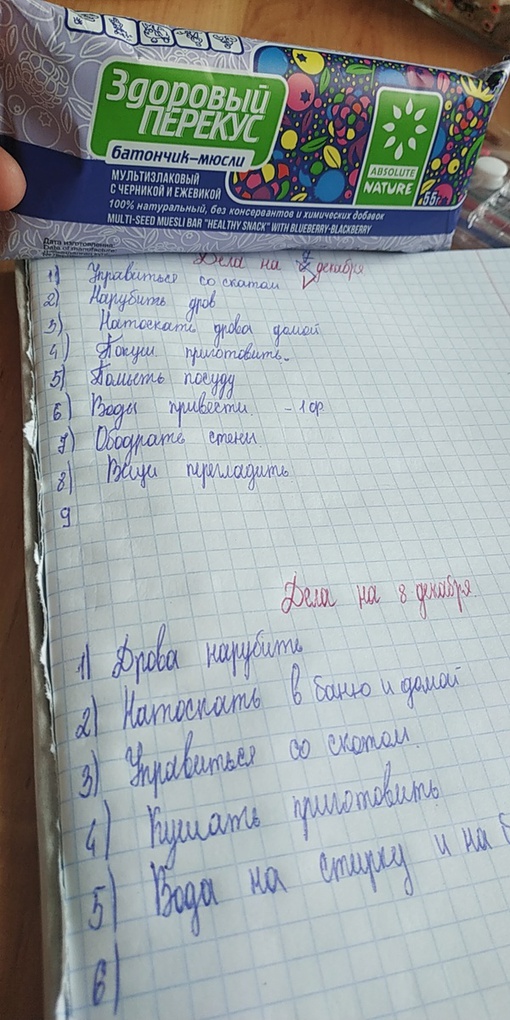 Здоровый
ПЕРЕКУС
батончик-мюсли
МУЛЬТИЗЛАКОВЫЙ
С ЧЕРНИКОЙ И ЕЖЕВИКОЙ
100% натуральный, без консервантов и химических добавок
MULTI-SEED MUESLI BAR "HEALTHY SNACK" WITH BLUEBERRY-BLACKBERRY
ABSOLUTE
NATURE
55г
Дата изготовления:
Date of manufacture:
Дела на декабря
1) Управиться со скотом
2) Нарубить дров
3) Натоскать дрова домой
4) Покуш приготовить.
5) Помыть посуду
6) Воды привести. - 1 ф.
7) Ободрать стены
8) Вещи перегладить
9
Дела на 8 декабря
1) Дрова нарубить
2) Натоскать в баню и домой
3) Управиться со скотом.
4) Кушать приготовить
5) Вода на стирку и на б
6)